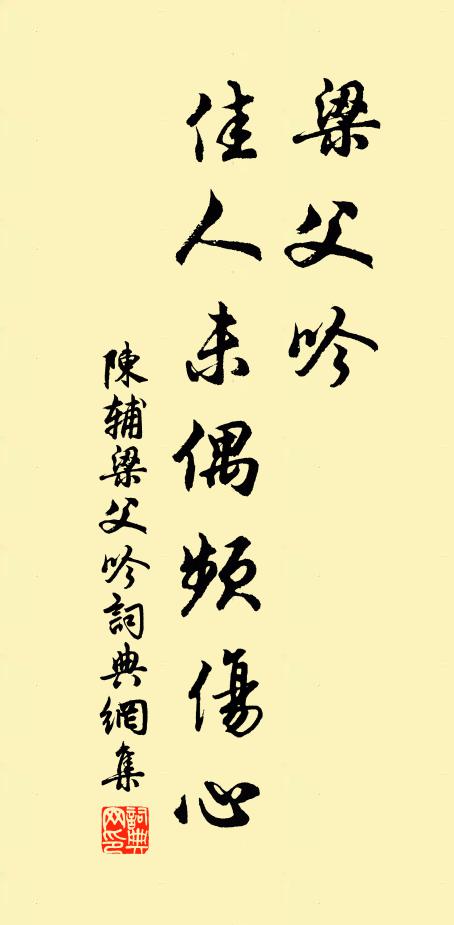 梁父吟
佳人未偶頻傷心
陳輔梁父吟詞典網集
詞典网印